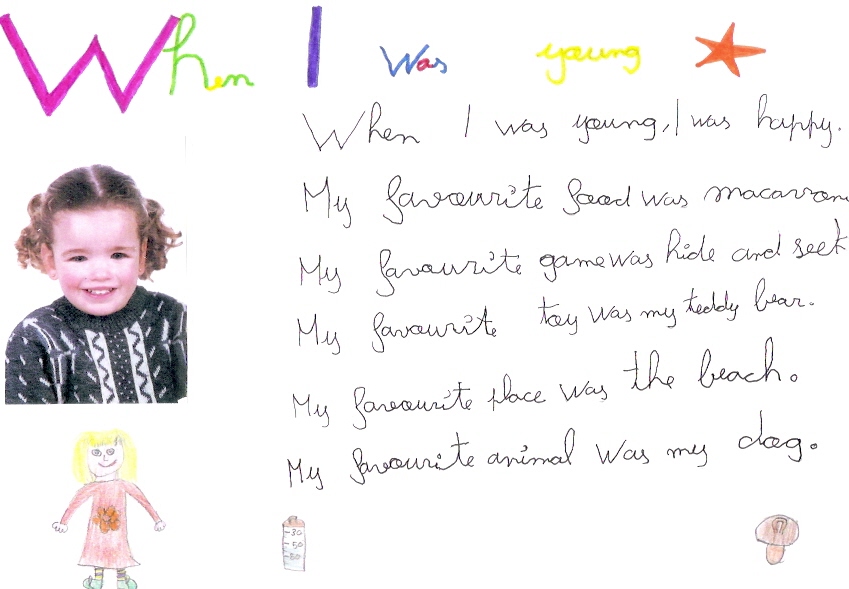 When I was young
When I was young, I was happy.
My favourite food was macarron
My favourite game was hide and seek
My favourite toy was my teddy bear.
My favourite place was the beach.
My favourite animal was my dog.
30
50
80